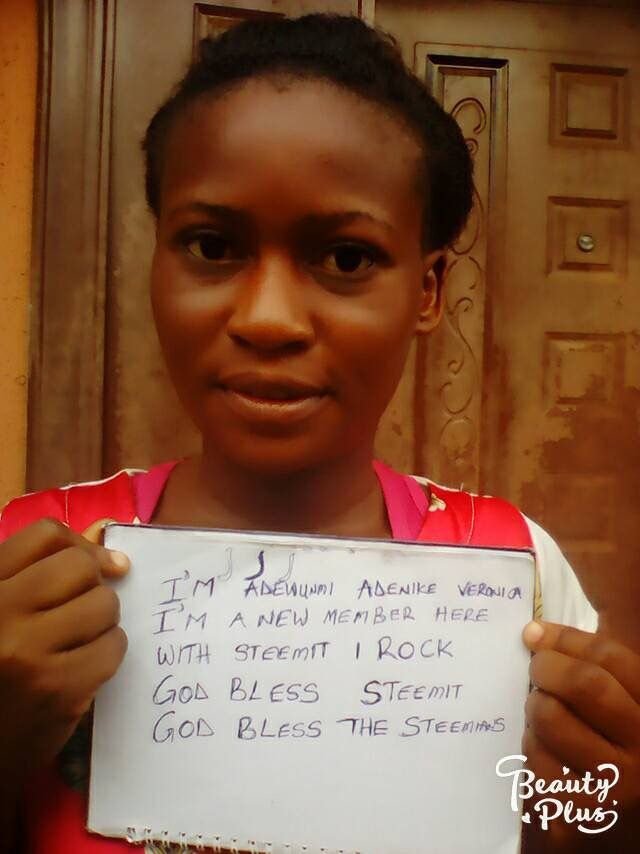 I'M ADEWUNMI ADENIKE VERONICA
I'M A NEW MEMBER HERE
WITH STEEMIT I ROCK
GOD BLESS STEEMIT
GOD BLESS THE STEEMIANS
Beauty
Plus